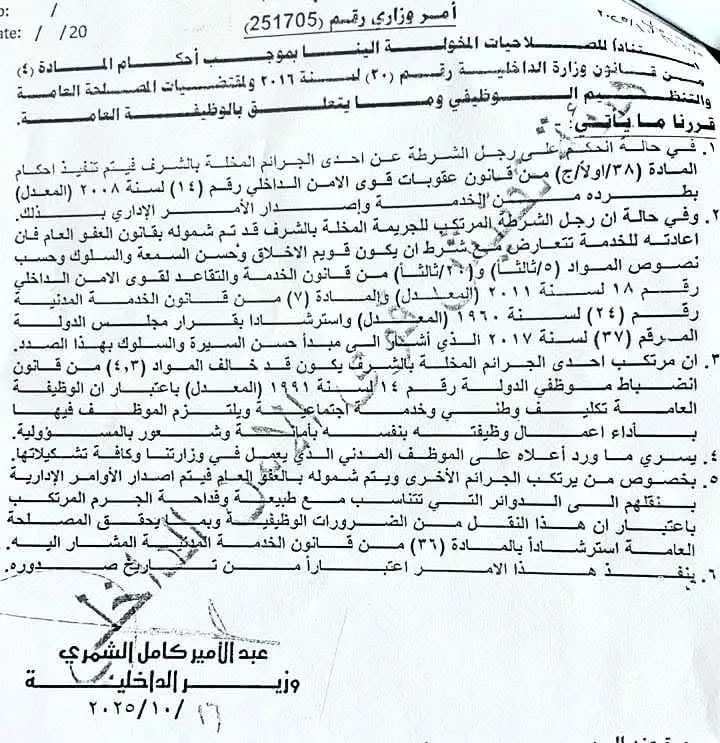 أمر وزاري رقم (251705)
/ /20
استناداً للصلاحيات المخولة الينا بموجب أحكام المادة (٤)
من قانون وزارة الداخلية رقم (٢٠) لسنة ٢٠١٦ ولمقتضيات المصلحة العامة
والتنظيم الوظيفي وما يتعلق بالوظيفة العامة.
قررنا ما يأتي:
١. في حالة الحكم على رجل الشرطة عن احدى الجرائم المخلة بالشرف فيتم تنفيذ احكام
المادة (٣٨/اولاً/ج) من قانون عقوبات قوى الامن الداخلي رقم (١٤) لسنة ٢٠٠٨ (المعدل)
بطرده من الخدمة وإصدار الأمر الإداري بذلك.
٢. وفي حالة ان رجل الشرطة المرتكب للجريمة المخلة بالشرف قد تم شموله بقانون العفو العام فان
اعادته للخدمة تتعارض مع شرط ان يكون قويم الاخلاق وحسن السمعة والسلوك وحسب
نصوص المواد (٥/ثالثاً) و(٢٠/ثالثاً) من قانون الخدمة والتقاعد لقوى الامن الداخلي
رقم ١٨ لسنة ٢٠١١ (المعدل) والمادة (٧) من قانون الخدمة المدنية
رقم (٢٤) لسنة ١٩٦٠ (المعدل) واسترشادا بقرار مجلس الدولة
المرقم (٣٧) لسنة ٢٠١٧ الذي أشار الى مبدأ حسن السيرة والسلوك بهذا الصدد.
٣. ان مرتكب احدى الجرائم المخلة بالشرف يكون قد خالف المواد (٤،٣) من قانون
انضباط موظفي الدولة رقم ١٤ لسنة ١٩٩١ (المعدل) باعتبار ان الوظيفة
العامة تكليف وطني وخدمة اجتماعية ويلتزم الموظف فيها
بأداء اعمال وظيفته بنفسه بأمانة وشعور بالمسؤولية.
٤. يسري ما ورد أعلاه على الموظف المدني الذي يعمل في وزارتنا وكافة تشكيلاتها.
٥. بخصوص من يرتكب الجرائم الأخرى ويتم شموله بالعفو العام فيتم اصدار الأوامر الإدارية
بنقلهم الى الدوائر التي تتناسب مع طبيعة وفداحة الجرم المرتكب
باعتبار ان هذا النقل من الضرورات الوظيفية وبما يحقق المصلحة
العامة استرشاداً بالمادة (٣٦) من قانون الخدمة المدنية المشار اليه.
٦. ينفذ هذا الامر اعتباراً من تاريخ صدوره.
عبد الأمير كامل الشمري
وزير الداخلية
١٦/ ١٠/ ٢٠٢٥